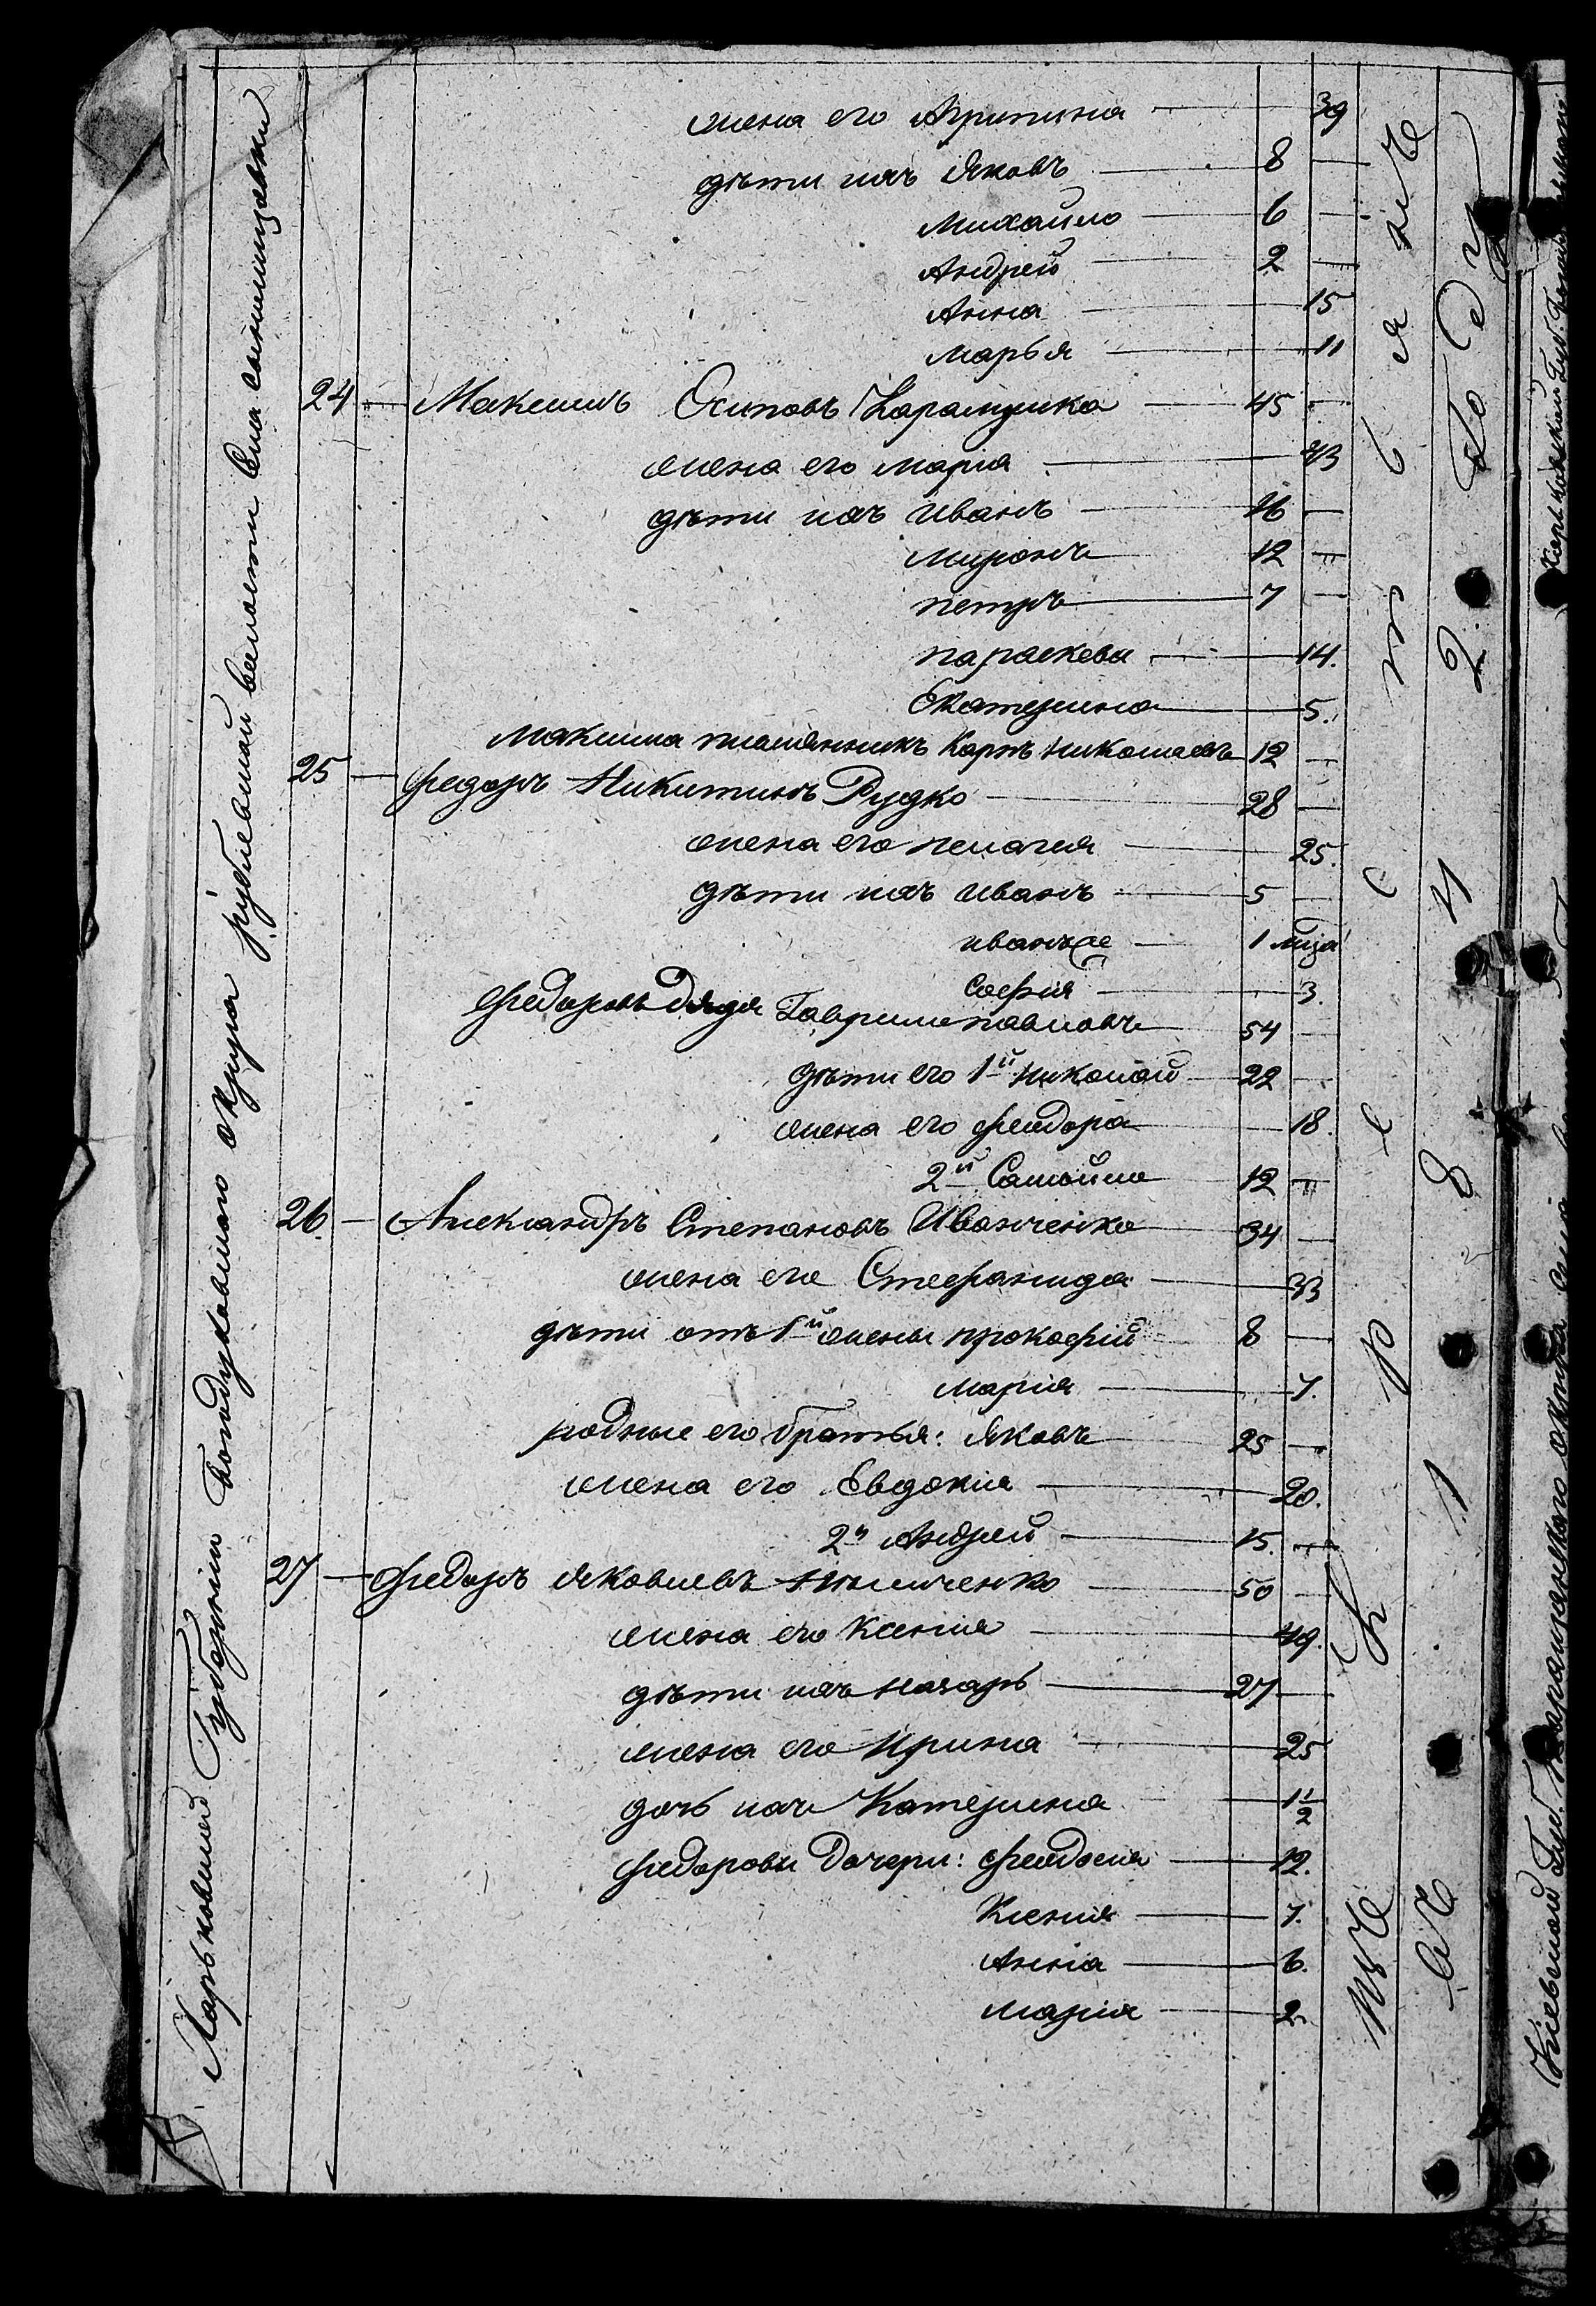 Харьковской Губерніи Богодуховского округа рублевской волости Села
жена его Агрипина — 39
дѣти ихъ Яковъ — 8 —
Михайло — 6 —
Андрей — 2 —
Анна — 15
Марья — 11
24 — Максимъ Осиповъ Карамушка — 45 —
жена его марія — 43
дѣти ихъ Иванъ — 16 —
миронъ — 12 —
петръ — 7 —
параскева — 14.
Екатерина — 5.
Максима племянникъ Карпъ николаевъ 12 —
25 — Федоръ Никитинъ Рудко — 28 —
жена его пелагея — 25.
дѣти ихъ иванъ — 5 —
иванъ же — 1 мца
софія — 3.
Федоровъ дядя Гаврило павловъ — 54 —
дѣти его 1й николай — 22 —
жена его феодора — 18.
2й Самойло — 12 —
26. — Александръ Степановъ Иванченко — 34 —
жена его Стефанида — 33
дѣти отъ 1й жены прокофій 8 —
марія — 7.
родные его братья: Яковъ — 25 —
жена его Евдокія — 20.
2й Андрей — 15. —
27 — Федоръ Яковлевъ — 50 —
жена его Ксенія — 49.
дѣти ихъ назаръ — 27 —
жена его Ирина — 25
дочь ихъ Катерина — 1 1/2
Федоровы дочери: Феодосія — 12.
Ксенія — 7.
Анна — 6.
марія — 2.
крестьяне
1 8 4 2 году